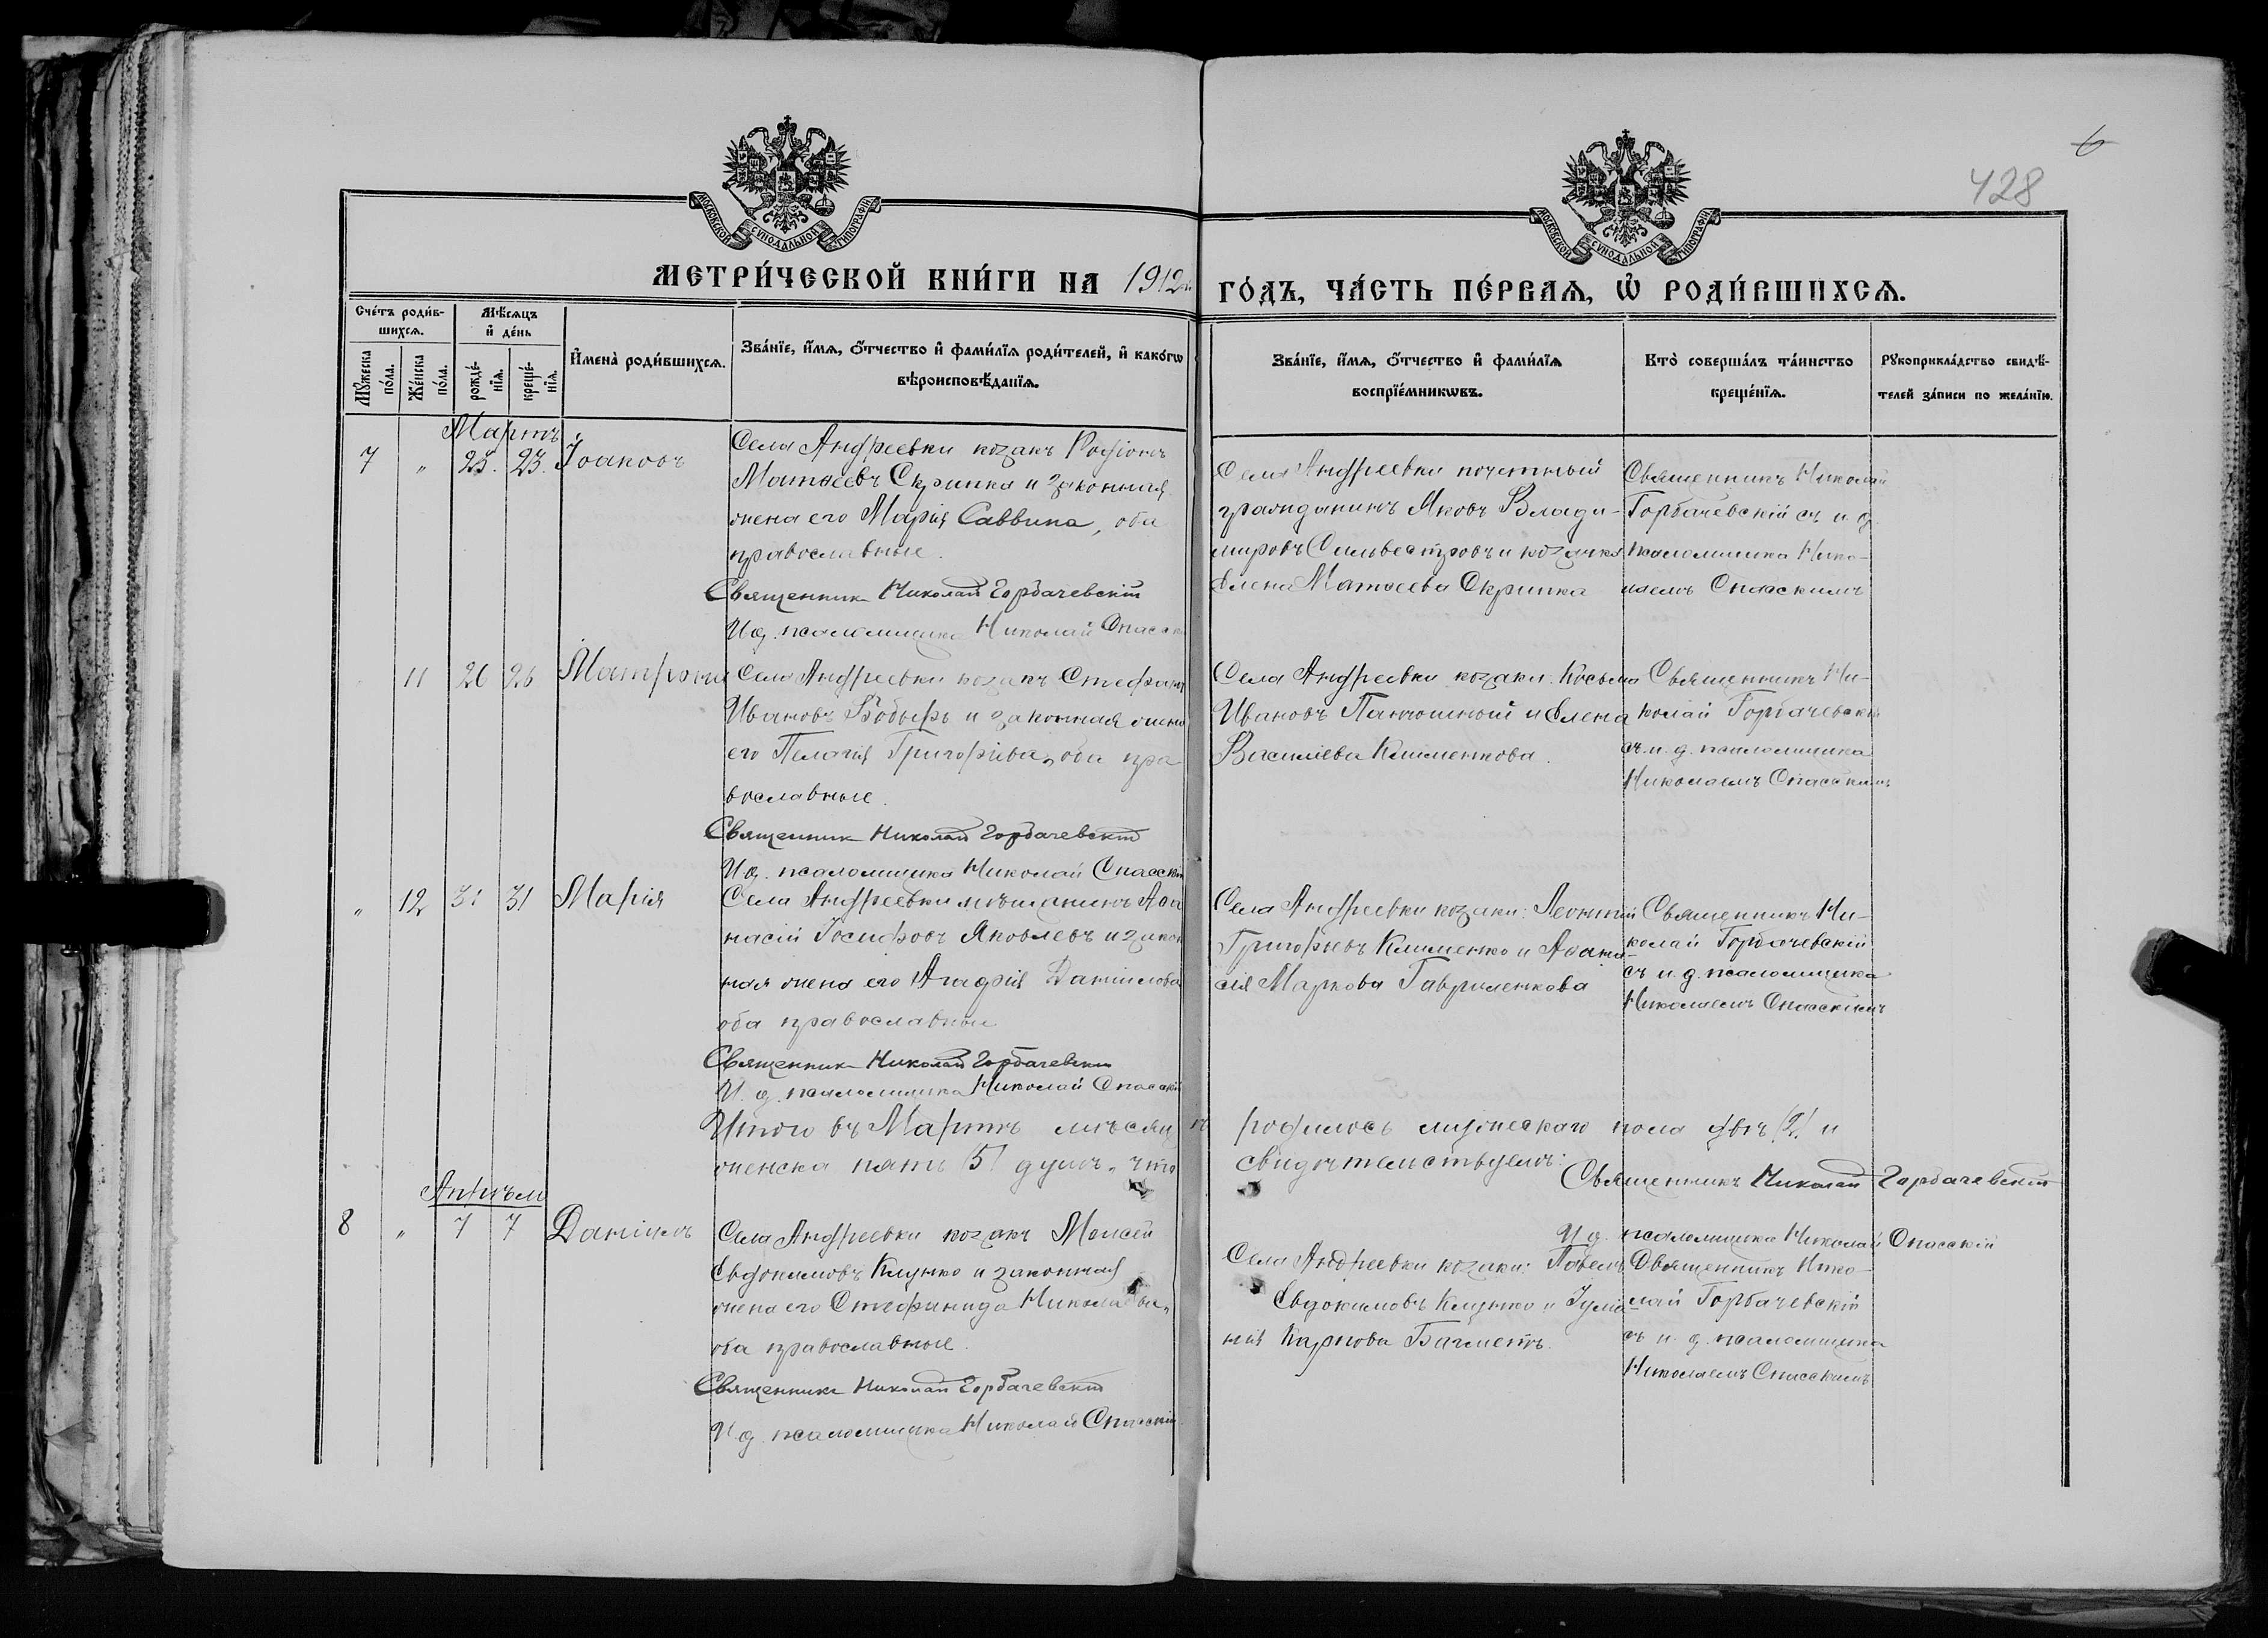 6
428
МОСКОВСКОЙ СѴНОДАЛЬНОЙ ТИПОГРАФІИ
МОСКОВСКОЙ СѴНОДАЛЬНОЙ ТИПОГРАФІИ
МЕТРИ́ЧЕСКОЙ КНИ́ГИ НА 1912 й ГО́ДЪ, ЧА́СТЬ ПЕ́РВАѦ, Ѡ҆ РОДИ́ВШИХСѦ.
Сче́тъ роди́в-
шихсѧ.
Мꙋ́жеска по́ла.
Же́нска по́ла.
Мѣ́сѧцъ
и҆ де́нь
рожде́-
нїѧ.
креще́-
нїѧ.
И҆мена̀ роди́вшихсѧ.
Зва́нїе, и҆́мѧ, ѻ҆́тчество и҆ фами́лїѧ роди́телей, и҆ како́гѡ
вѣроисповѣ́данїѧ.
Зва́нїе, и҆́мѧ, ѻ҆́тчество и҆ фами́лїѧ
воспрїе́мникѡвъ.
Кто̀ соверша́лъ та́инство
креще́нїѧ.
Рꙋкоприкла́дство свидѣ́-
телей за́писи по жела́нїю.
Мартъ
7 " 23. 23. Іоаковъ
Села Андреевки козакъ Родіонъ
Матѳеевъ Скрипка и законная
жена его Марія Саввина, оба
православные.
Священник Николай Горбачевскій
И д. псаломщика Николай Спасскій
Села Андреевки почетный
гражданинъ Яковъ Влади-
мировъ Сильвестровъ и козачка
Елена Матѳеева Скрипка
Священникъ Николай
Горбачевскій съ и. д.
псаломщика Нико-
лаемъ Спасскимъ
11 26 26 Матрона
Села Андреевки козакъ Стефанъ
Ивановъ Бобырь и законная жена
его Пелагія Григорьева, оба пра
вославные.
Священник Николай Горбачевскій
И д. псаломщика Николай Спасскій
Села Андреевки козаки: Косьма
Ивановъ Панюшкой и Елена
Василіева Клименкова.
Священникъ Ни-
колай Горбачевскій
съ и. д. псаломщика
Николаемъ Спасскимъ
" 12 31 31 Марія
Села Андреевки мѣщанинъ Аѳа
насій Іосифовъ Яковлевъ и закон
ная жена его Агафія Даніилова
оба православные
Священник Николай Горбачевскій
И. д. псаломщика Николай Спасскій
Села Андреевки козаки: Леонтій
Григорьевъ Клименко и Аѳана-
сія Маркова Гавриленкова
Священникъ Ни-
колай Горбачевскій
съ и. д. псаломщика
Николаемъ Спасскимъ
Итого въ Мартѣ мѣсяцѣ родилось мужескаго пола двѣ (2) и
женска пять (5) душъ. что свидѣтельствуемъ:
Священникъ Николай Горбачевскій
И д. псаломщика Николай Спасскій
Апрѣль
8 " 7 7 Даніилъ
Села Андреевки козакъ Моисей
Евдокимовъ Клунко и законная
жена его Стефанида Николаева,
оба православные.
Священник Николай Горбачевскій
И д. псаломщика Николай Спасскій
Села Андреевки козаки: Павелъ
Евдокимовъ Клунко и Іуліа-
нія Карпова Бачметъ.
Священникъ Нико-
лай Горбачевскій
съ и. д. псаломщика
Николаемъ Спасскимъ